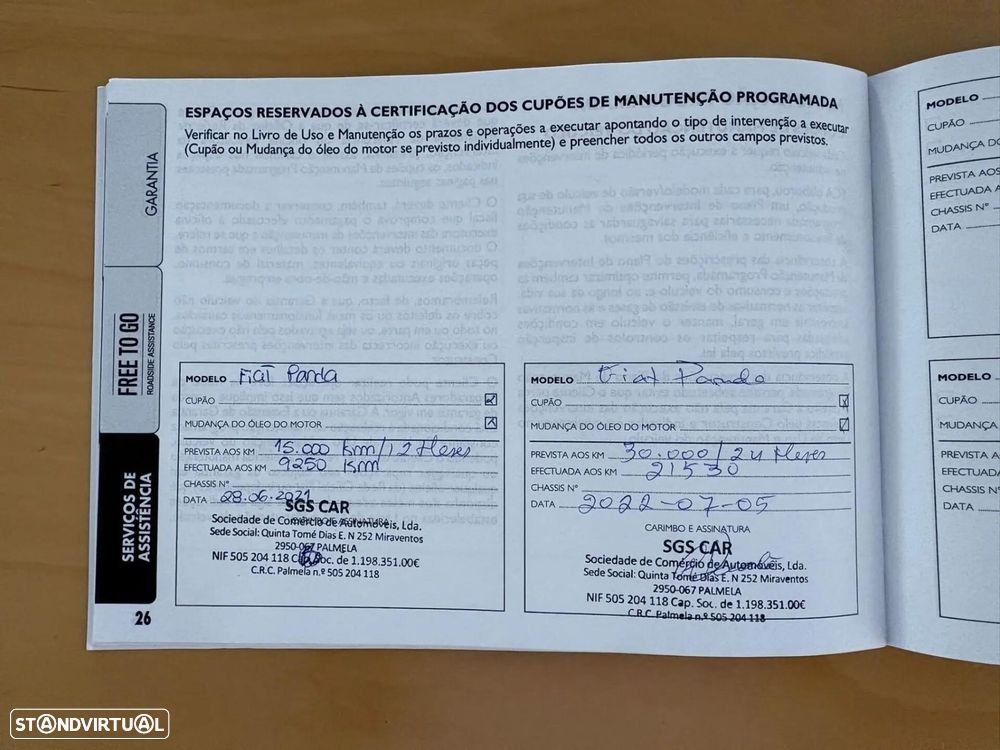 ESPAÇOS RESERVADOS À CERTIFICAÇÃO DOS CUPÕES DE MANUTENÇÃO PROGRAMADA
Verificar no Livro de Uso e Manutenção os prazos e operações a executar apontando o tipo de intervenção a executar
(Cupão ou Mudança do óleo do motor se previsto individualmente) e preencher todos os outros campos previstos.
GARANTIA
FREE TO GO
ROADSIDE ASSISTANCE
SERVIÇOS DE
ASSISTÊNCIA
26
MODELO Fiat Panda
CUPÃO
MUDANÇA DO ÓLEO DO MOTOR
PREVISTA AOS KM 15.000 km/12 Meses
EFECTUADA AOS KM 9250 km
CHASSIS Nº
DATA 28.06.2021
CARIMBO E ASSINATURA
SGS CAR
Sociedade de Comércio de Automóveis, Lda.
Sede Social: Quinta Tomé Dias E. N 252 Miraventos
2950-067 PALMELA
NIF 505 204 118 Cap. Soc. de 1.198.351.00€
C.R.C. Palmela n.º 505 204 118
MODELO Fiat Panda
CUPÃO
MUDANÇA DO ÓLEO DO MOTOR
PREVISTA AOS KM 30.000/24 Meses
EFECTUADA AOS KM 21530
CHASSIS Nº
DATA 2022-07-05
CARIMBO E ASSINATURA
SGS CAR
Sociedade de Comércio de Automóveis, Lda.
Sede Social: Quinta Tomé Dias E. N 252 Miraventos
2950-067 PALMELA
NIF 505 204 118 Cap. Soc. de 1.198.351.00€
C.R.C. Palmela n.º 505 204 118
MODELO
CUPÃO
MUDANÇA DO
PREVISTA AOS
EFECTUADA A
CHASSIS Nº
DATA
MODELO
CUPÃO
MUDANÇA
PREVISTA A
EFECTUADA
CHASSIS N
DATA
STANDVIRTUAL